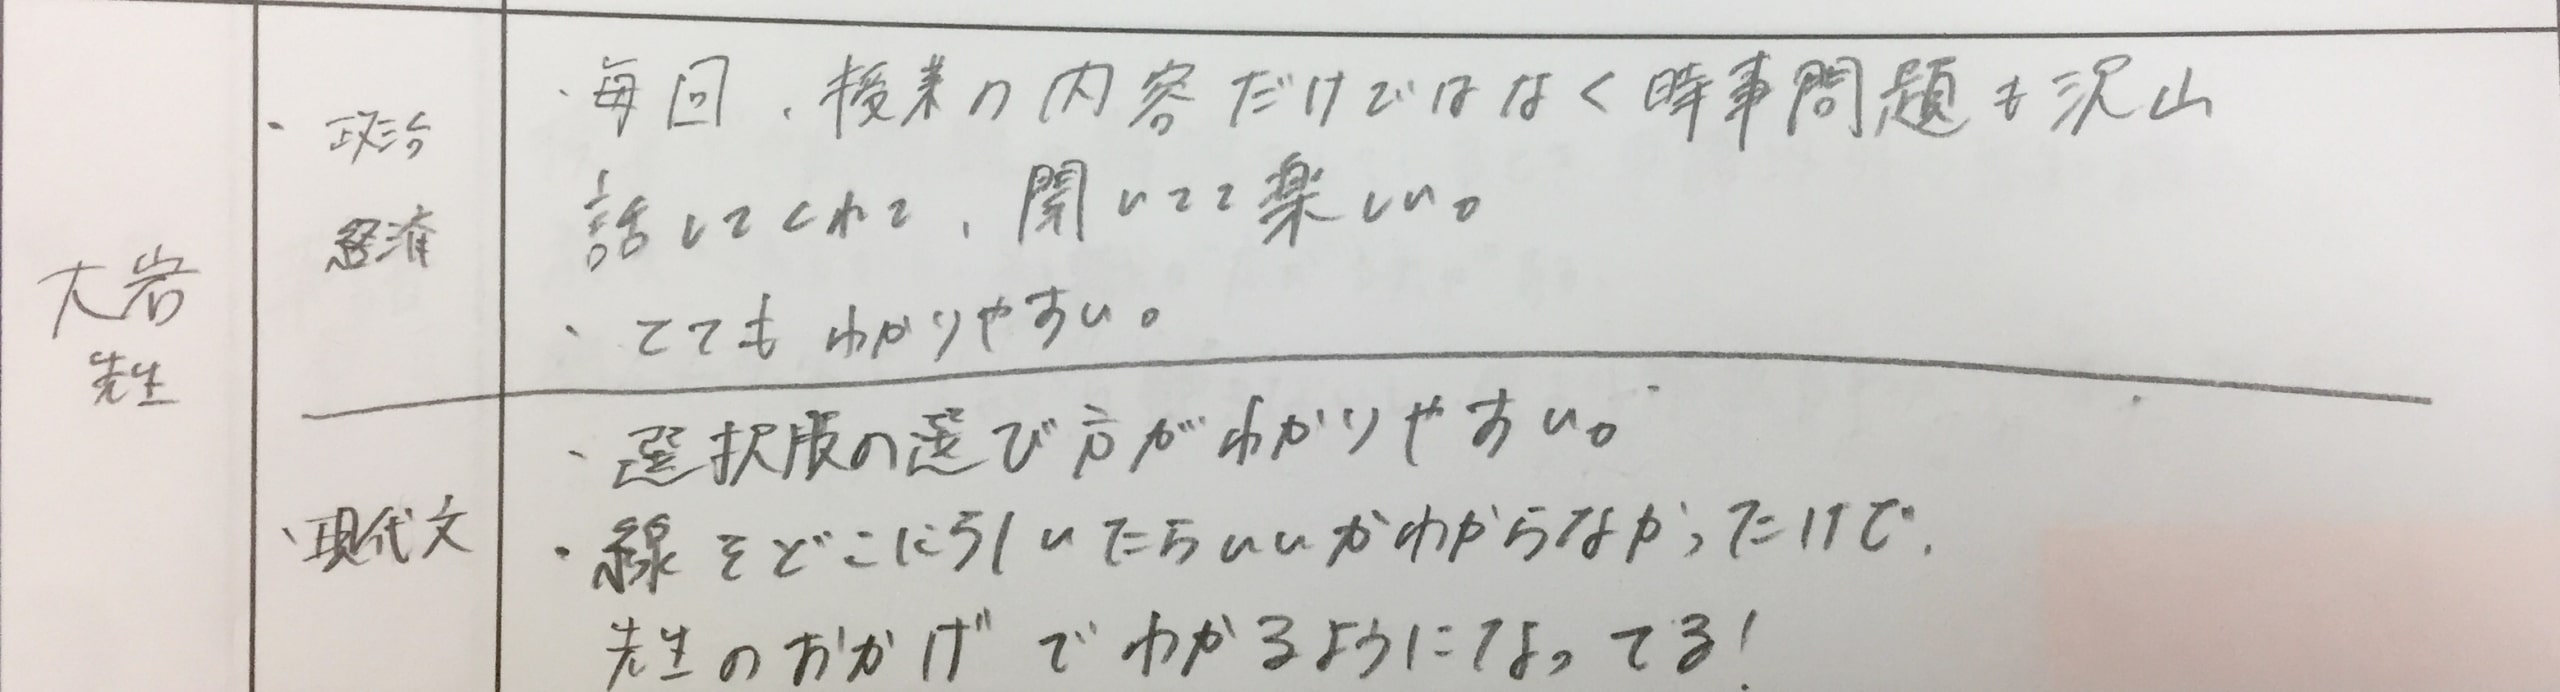 大岩
先生
・政治
経済
・毎回、授業の内容だけではなく時事問題も沢山
話してくれて、聞いてて楽しい。
・とてもわかりやすい。
・現代文
・選択肢の選び方がわかりやすい。
・線をどこに引いたらいいかわからなかったけど、
先生のおかげでわかるようになってる!